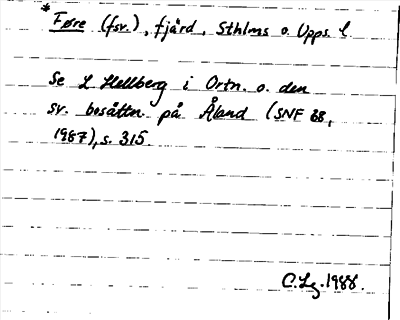 * Føre (fsv.), fjärd, Sthlms o. Upps. l.
Se L Hellberg i Ortn. o. den
sv. bosättn. på Åland (SNF 68,
1987), s. 315.
C.Lg. 1988.